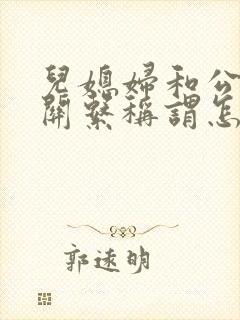 兒媳婦和公
關繫稱謂怎
郭遠明